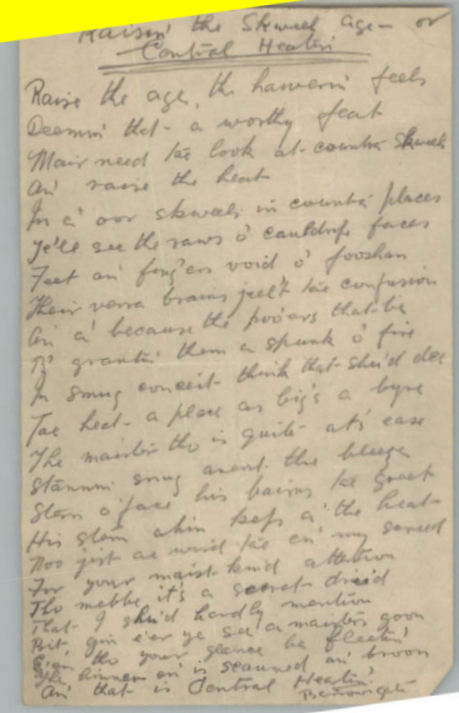 Raisin' the Skweel age – or
Central Heatin'
Raise the age, the haiverin' feels
Deemin' that a worthy feat
Mair need tae look at countra skweels
An' raise the heat
In a' oor skweels in countra places
Ye'll see the raws o' cauldrife faces
Feet an' fingers void o' fooshan
Their verra brains jeel't tae confusion
An' a' because the pooers that be
grantin' them a spunk o' fire
In smug conceit think that shu'd dee
Tae heat a place as big's a byre
The maister tho is quite at's ease
Stannin' snug anent the bleeze
Stern o' face his bairns tae greet
His stern ahin keps a' the heat
Noo jist ae wird tae en' my screed
For your maist kin'd attention
Tho mebbe it's a secret dreid
That I shu'd hardly mention
Bit, gin e'er ye see a maister's goon
E'en tho your glance be fleetin'
The hinner en' is scaumed an' broon
An' that is Central Heatin'.